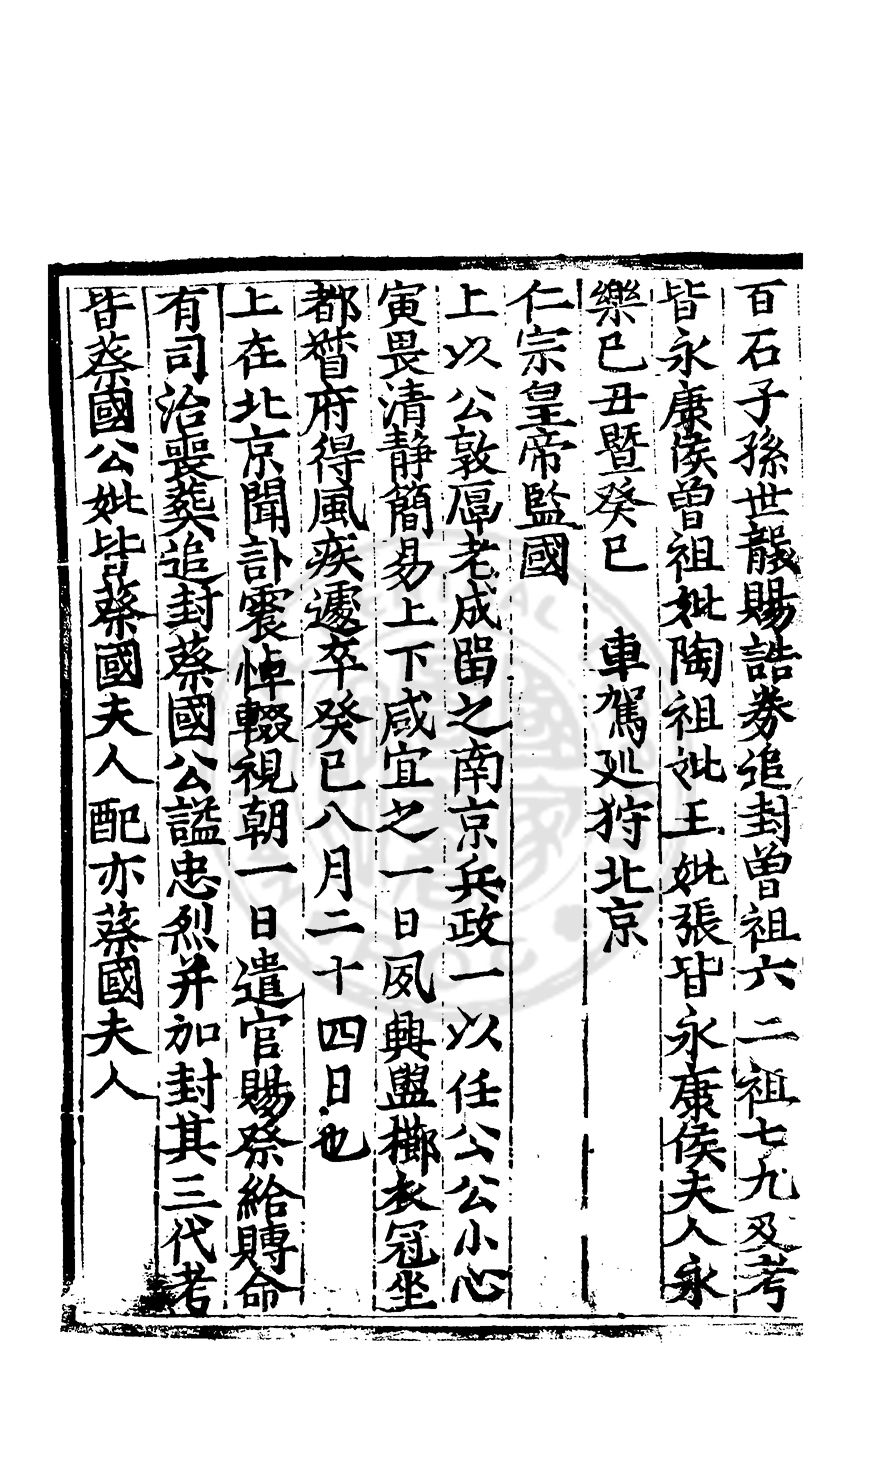 百石子孫世襲賜誥券追封曾祖六二祖七九及考
皆永康侯曾祖妣陶祖妣王妣張皆永康侯夫人永
樂己丑暨癸巳　車駕廵狩北京
仁宗皇帝監國
上以公敦厚老成留之南京兵政一以任公公小心
寅畏清静簡易上下咸宜之一日夙興盥櫛衣冠坐
都督府得風疾遽卒癸巳八月二十四日也
上在北京聞訃震悼輟視朝一日遣官賜祭給賻命
有司治喪葬追封蔡國公謚忠烈并加封其三代考
皆蔡國公妣皆蔡國夫人配亦蔡國夫人